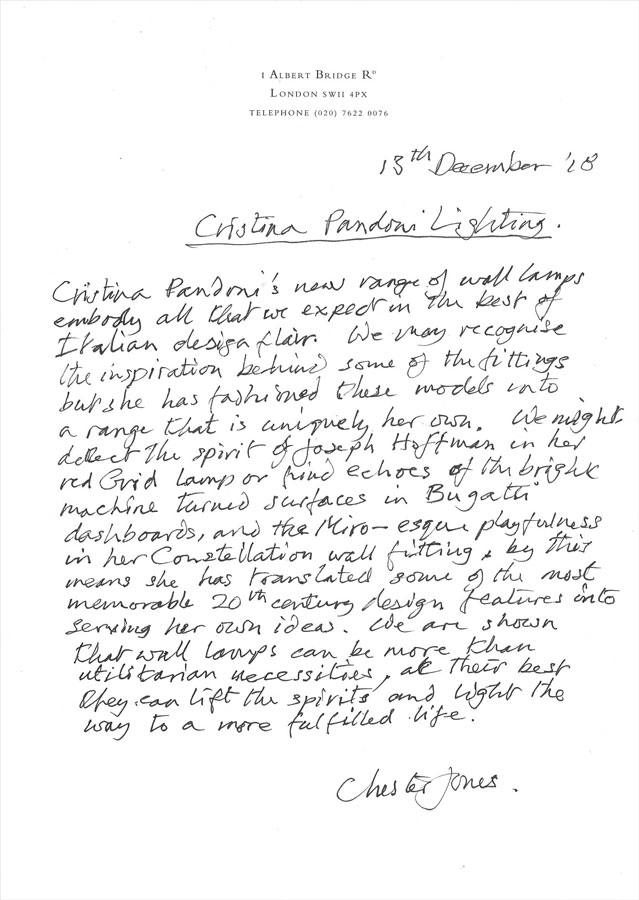 1 ALBERT BRIDGE RD
LONDON SW11 4PX
TELEPHONE (020) 7622 0076
13th December '18
Cristina Pandoni Lighting.
Cristina Pandoni's new range of wall lamps
embody all that we expect in the best of
Italian design flair. We may recognise
the inspiration behind some of the fittings
but she has fashioned these models into
a range that is uniquely her own. We might
detect the spirit of Joseph Hoffman in her
red Grid lamp or find echoes of the bright
machine turned surfaces in Bugatti
dashboards, and the Miro-esque playfulness
in her Constellation wall fitting & by this
means she has translated some of the most
memorable 20th century design features into
serving her own ideas. We are shown
that wall lamps can be more than
utilitarian necessities, at their best
they can lift the spirits and light the
way to a more fulfilled life.
Chester Jones.